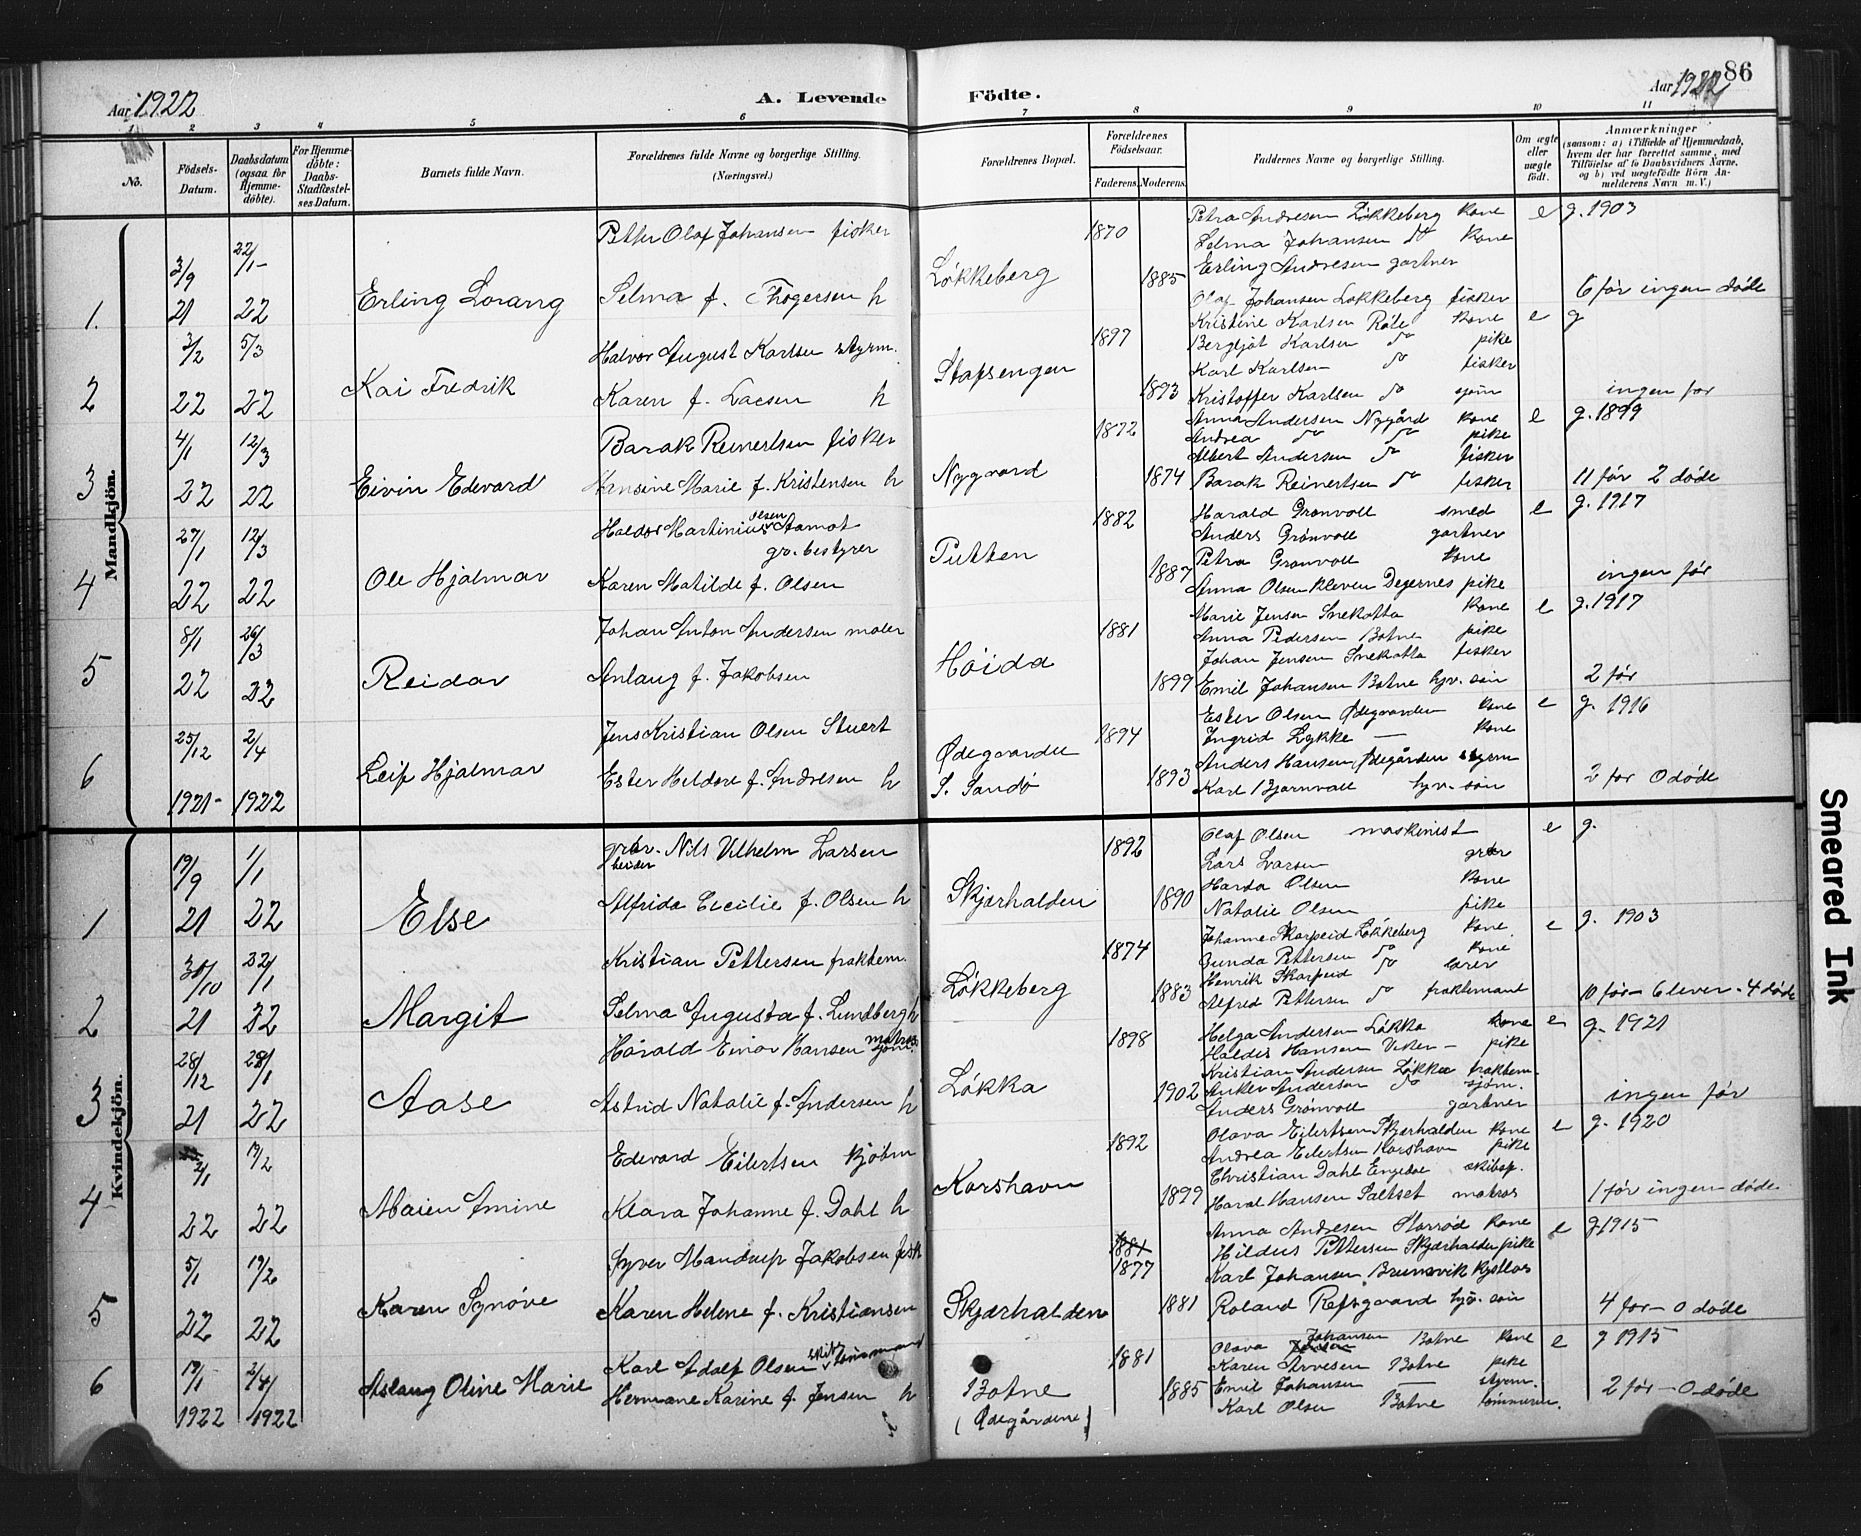 Aar 1922
A. Levende Födte.
Aar 1922
86
1 2 3 4 5 6 7 8 9 10 11
No.
Födsels-Datum.
Daabsdatum (ogsaa for Hjemme-döbte).
For Hjemme-döbte: Daabs-Stadfæstel-ses Datum.
Barnets fulde Navn.
Forældrenes fulde Navne og borgerlige Stilling.
(Næringsvei.)
Forældrenes Bopæl.
Forældrenes Födselsaar.
Faderens. Moderens.
Faddernes Navne og borgerlige Stilling.
Om ægte eller uægte födt.
Anmærkninger
(saasom: a) i Tilfælde af Hjemmedaab, hvem der har forrettet samme, med Tilföielse af to Daabsvidners Navne, og b) ved uægtefödte Börn An-melderens Navn m. V.)
Mandkjön.
1. 3/9 21 22/1 - 22
Erling Lorang
Petter Olaf Johansen fisker
Selma f. Thogersen h
Løkkeberg
1870 1885
Petra Andresen Løkkeberg kone
Selma Johansen do kone
Erling Andresen gartner
Olaf Johansen Løkkeberg fisker
e g. 1903
6 før ingen døde
2 3/2 22 5/3 22
Kai Fredrik
Halvor August Karlsen styrm.
Karen f. Larsen h
Stafsengen
1897 1893
Kristine Karlsen Røte kone
Bergljot Karlsen do pike
Karl Karlsen do fisker
Kristoffer Karlsen do sjøm
e g
ingen før
3 4/1 22 12/3 22
Eivin Edvard
Barak Reinertsen fisker
Hansine Marie f. Kristensen h
Nygaard
1872 1874
Anna Andersen Nygård kone
Andrea do do pike
Albert Andersen do fisker
Barak Reinertsen do fisker
e g. 1899
11 før 2 døde
4 27/1 22 12/3 22
Ole Hjalmar
Haldor Martinius Olsen Aamot
gr. bestyrer
Karen Matilde f. Olsen
Putten
1882 1887
Harald Grønvoll smed
Anders Grønvoll gartner
Petra Grønvoll kone
Anna Olsen Kleven Degernes pike
e g. 1917
ingen før
5 8/1 22 26/3 22
Reidar
Johan Anton Andersen maler
Anlaug f. Jakobsen
Høida
1881 1899
Marie Jensen Snekotta kone
Anna Pedersen Botne pike
Johan Jensen Snekotta fisker
Emil Johansen Botne hjv. søn
e g. 1917
2 før
6 25/12 1921- 2/4 1922
Leif Hjalmar
Jens Kristian Olsen Stuert
Ester Heldore f. Andresen h
Ødegaarden
S. Sandø
1894 1893
Ester Olsen Ødegaarden kone
Ingrid Lykke — kone
Anders Hansen, Ødegården styrm
Karl Bjørnvall hjv. søn
e g. 1916
2 før 0 døde
Kvindekjön.
1 19/9 21 1/1 22
Else
Nils Vilhelm Larsen
Alfrida Cecilie f. Olsen h
Skjærhalden
1892 1890
Olaf Olsen maskinist
Lars Larsen
Harda Olsen kone
Natalie Olsen pike
e g.
2 30/10 21 22/1 22
Margit
Kristian Pettersen fraktem.
Selma Augusta f. Lundberg h
Løkkeberg
1874 1883
Johanne Skarpeid Løkkeberg kone
Gunda Pettersen do kone
Henrik Skarpeid do lærer
Alfred Pettersen do fraktemand
e g. 1903
10 før - 6 lever - 4 døde
3 28/12 21 29/1 22
Aase
Harald Einar Hansen matros
Astrid Natalie f. Andersen h
Løkka
1898 1902
Helga Andersen Løkka kone
Haldis Hansen Viken — pike
Kristian Andersen Løkka fraktem.
Anker Andersen do sjøm.
Anders Grønvoll gartner
e g. 1921
ingen før
4 2/1 22 19/2 22
Maien Amine
Edevard Eilertsen kjøbm
Klara Johanne f. Dahl h
Korshavn
1892 1899
Olava Eilertsen Skjærhalden kone
Andrea Eilertsen Korshavn pike
Christian Dahl Engedal skibsf.
Haral Hansen Saltset matros
e g. 1920
1 før ingen døde
5 5/1 22 19/2 22
Karen Synøve
Syver Mandrup Jakobsen fisk
Karen Helene f. Kristiansen
Skjærhalden
1881 1877 1881
Anna Andresen Storrød kone
Hildus Pettersen Skjærhalden pike
Karl Johansen Brunsvik
Roland Refsgaard hjv. søn
e g 1915
4 før - 0 døde
6 19/1 1922 2/4 1922
Aslaug Oline Marie
Karl Adolf Olsen skibstømmermand
Hermane Karine f. Jensen h
Botne
(Ødegårdene)
1881 1885
Olava Johansen Botne kone
Karen Arvesen Botne pike
Emil Johansen — styrm.
Karl Olsen Botne tømmerm.
e g 1915
2 før - 0 døde
Smeared Ink